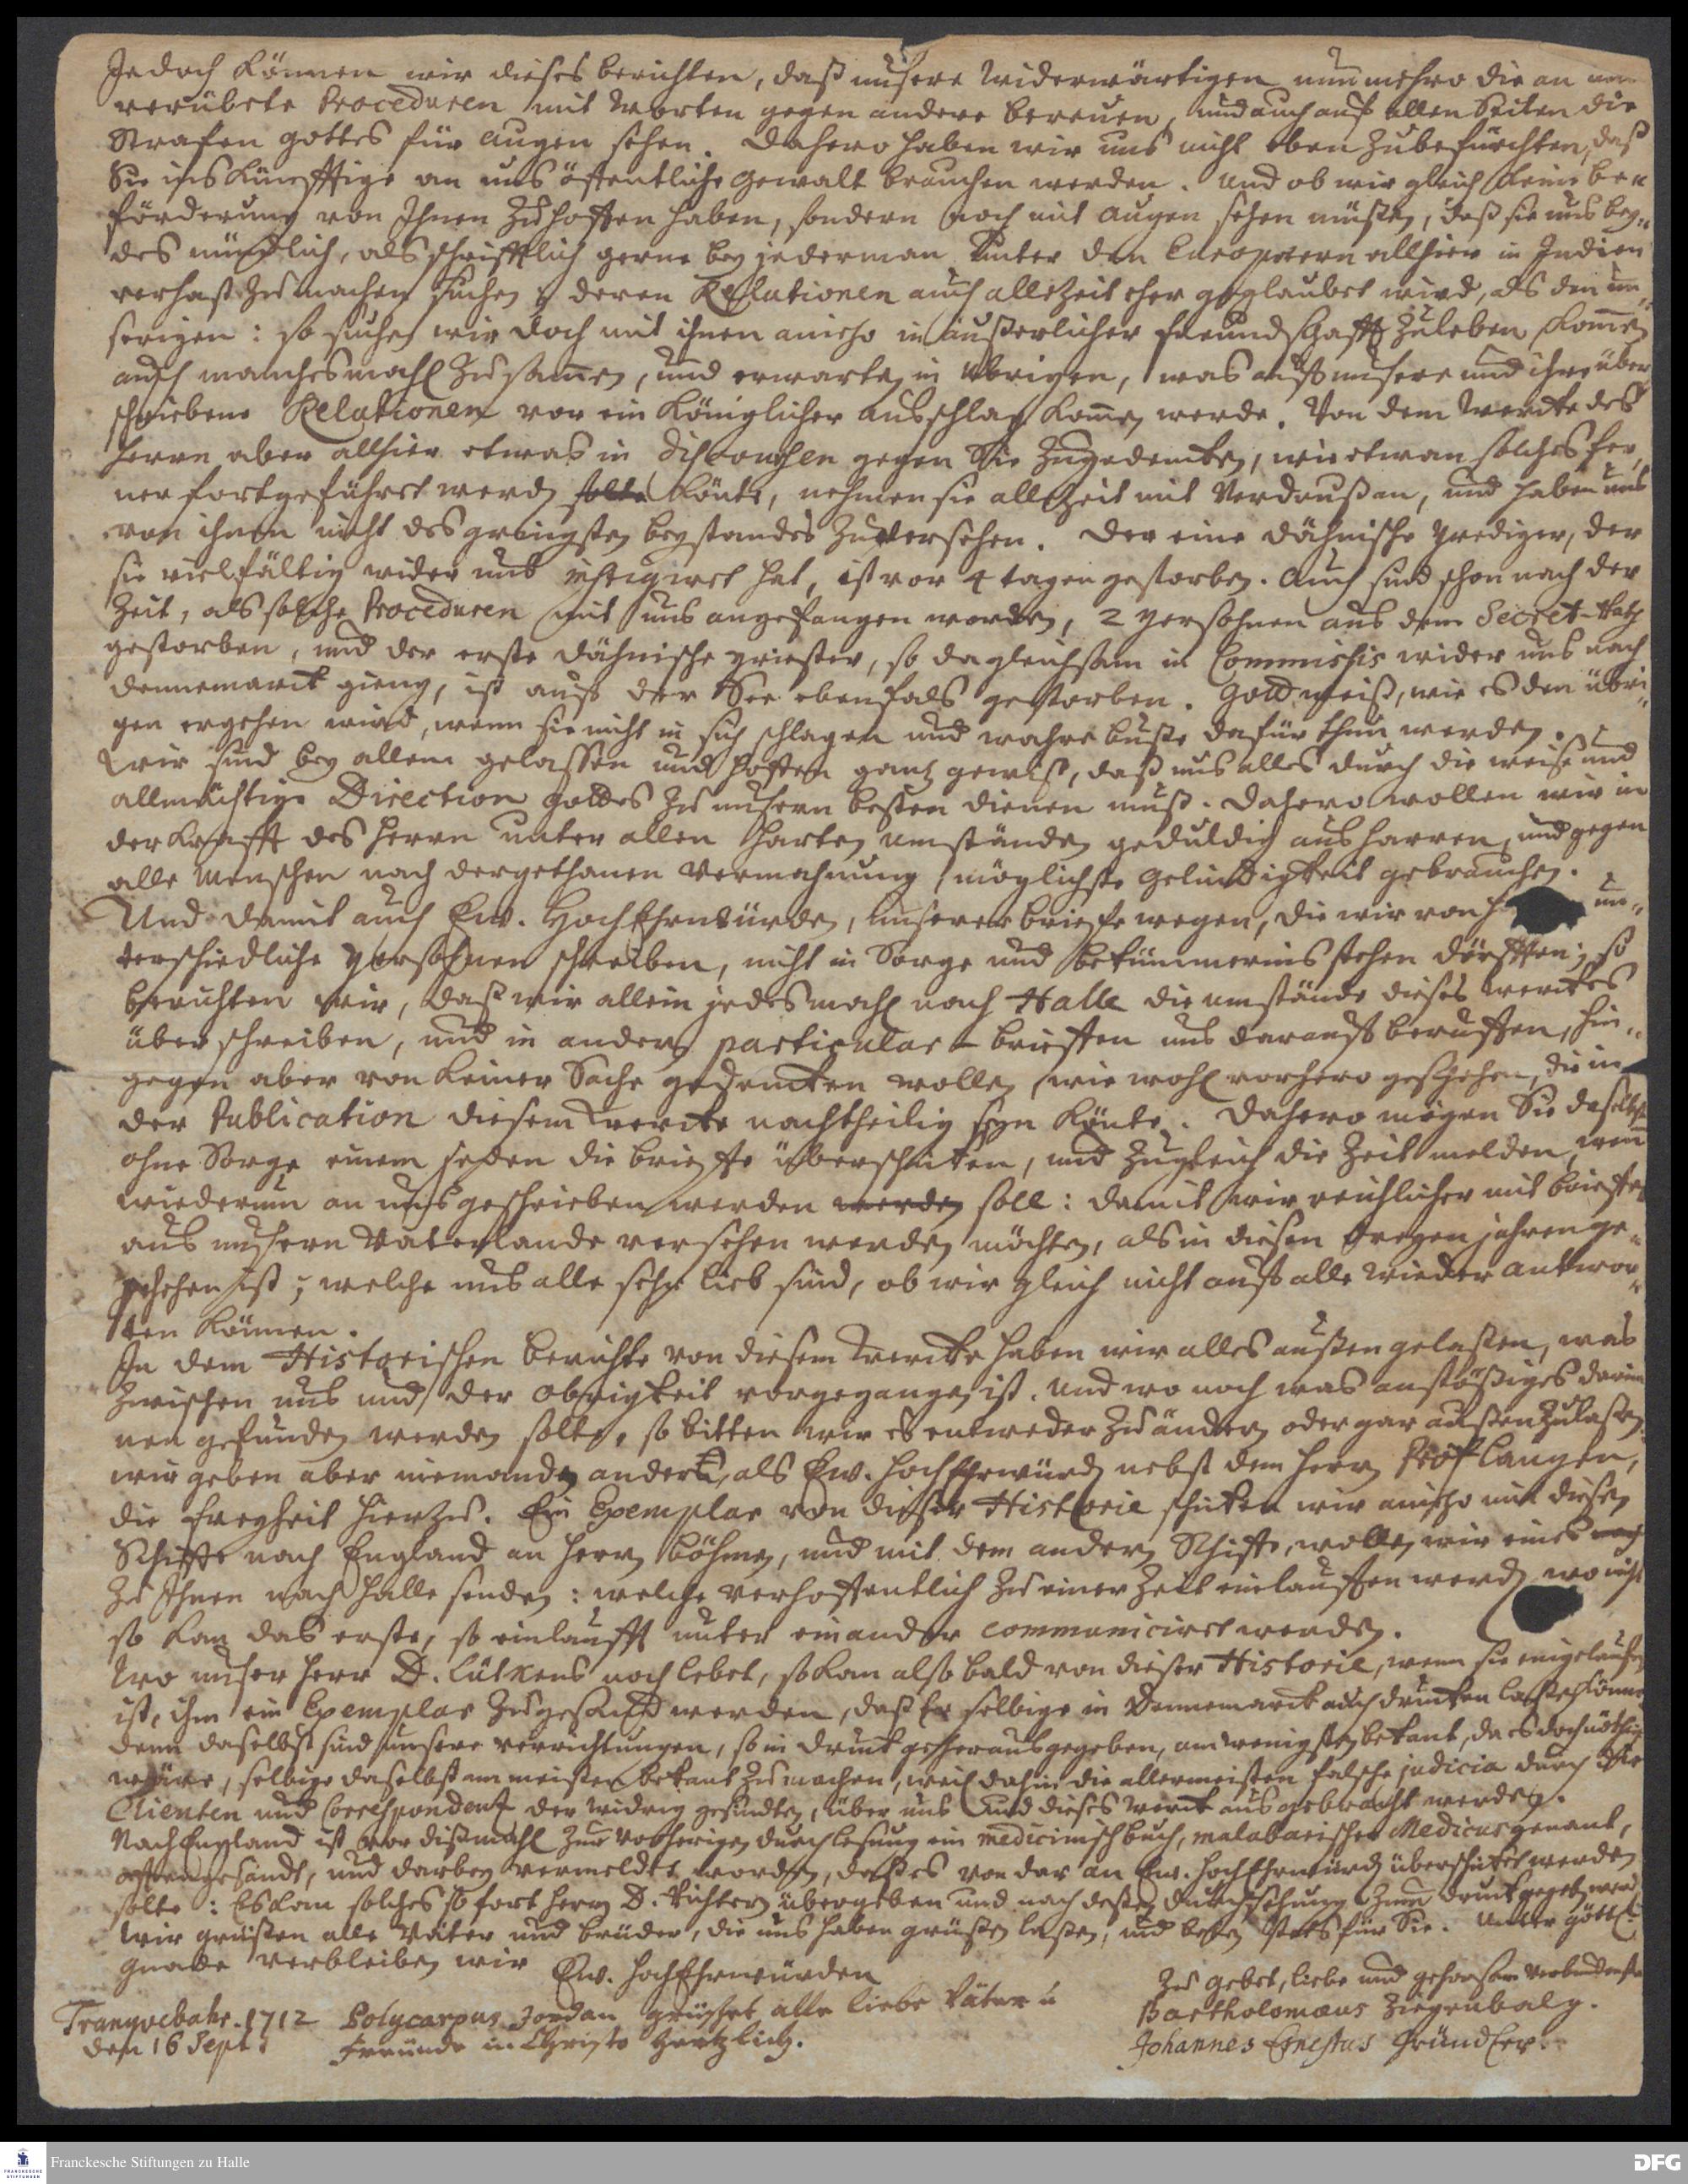 Jedoch können wir dieses berichten, daß unsere Widerwärtigen nunmehro die an uns
verübete Proceduren mit Worten gegen andere bereuen, und auch auf allen Seiten die
Strafen Gottes für Augen sehen. Dahero haben wir uns nicht eben zubefürchten, daß
Sie ins künfftige an uns öffentliche Gewalt brauchen werden. Und ob wir gleich keine be„
förderung von Ihnen zuhoffen haben, sondern noch mit Augen sehen müßen, daß sie uns bey„
des mündlich, als schrifftlich gerne bey jederman unter den Europæern allhier in Indien
verhast zumachen suchen, deren Relationen auch allezeit eher geglaubet wird, als den un„
serigen: so suchen wir doch mit ihnen anietzo in äußerlicher freundschafft zuleben, kom̄en
auch manchesmahl zusam̄en, und erwarten in übrigen, was auff unsere und ihre über„
schriebene Relationen vor ein Königlicher Ausschlag kom̄en werde. Von dem Wercke des
Herrn aber allhier etwas in discoursen gegen Sie zugedencken, wie etwan solches fer„
ner fortgeführet werden solte könte, nehmen sie allezeit mit Verdruß an, und haben uns
von ihnen nicht des geringsten beystandes zuversehen. Der eine Dähnische Prediger, der
sie vielfältig wider uns instigiret hat, ist vor 4 tagen gestorben. Auch sind schon nach der
Zeit, als solche Proceduren mit uns angefangen worden, 2 Persohnen aus dem Secret-Rath
gestorben, und der erste Dähnische Priester, so da gleichsam in Commissis wider uns nach
Dennemarck gieng, ist auff der See ebenfals gestorben. Gott weiß, wie es den übri„
gen ergehen wird, wenn sie nicht in sich schlagen und wahre buße dafür thun werden.
Wir sind bey allem gelassen und hoffen gantz gewiß, daß uns alles durch die weise und
allmächtige Direction Gottes zu unsern besten dienen muß. Dahero wollen wir in
der Krafft des Herrn unter allen harten umständen geduldig ausharren, und gegen
alle Menschen nach der gethanen Vermahnung möglichste Gelindigkeit gebrauchen.
Und damit auch Ew. HochEhrwürden, unserer briefe wegen, die wir von un„
terschiedliche Persohnen schreiben, nicht in Sorge und bekümmernis stehen dörfften; so
berichten wir, daß wir allein jedesmahl nach Halle die umstände dieses Werckes
überschreiben, und in andern particular-briefen uns darauff beruffen, hin„
gegen aber von keiner Sache gedencken wollen, wie wohl vorhero geschehen, die in
der Publication diesem Wercke nachtheilig seyn könte. Dahero mögen Sie daselbst
ohne Sorge einem jeden die briefe überschicken, und zugleich die Zeit melden, wenn
wiederum an uns geschrieben werden werden soll: damit wir reichlicher mit briefen
aus unsern Vaterlande versehen werden möchten, als in diesen dreyen jahren ge„
schehen ist; welche uns alle sehr lieb sind, ob wir gleich nicht auff alle wieder antwor„
ten können.
In dem Historischen berichte von diesem Wercke haben wir alles außen gelaßen, was
zwischen uns und der Obrigkeit vorgegangen ist. Und wo noch was anstößiges darin„
nen gefunden werden solte, so bitten wir es entweder zu ändern oder gar außenzulaßen.
wir geben aber niemanden anders, als Ew. HochEhrwürden nebst dem Herrn Prof Langen,
die Freyheit hierzu. Ein Exemplar von dieser Historie schicken wir anietzo mit diesen
Schiffe nach England an Herrn Böhmen, und mit dem andern Schiffe, wollen wir eines noch
zu Ihnen nach Halle senden: welche verhoffentlich zu einer Zeit einlauffen werden, wo nicht
so kan das erste, so einlaufft unter einander communiciret werden.
Wo unser Herr D. Lütkens noch lebet, so kan alsobald von dieser Historie, wenn sie eingelauffen
ist, ihm ein Exemplar zugesandt werden, daß Er selbige in Dennemarck auch drucken laßen könne,
denn daselbst sind unsere verrichtungen, so in druck herausgegeben, am wenigsten bekant, da es doch nöthig
wäre, selbige daselbst am meisten bekant zumachen, weil dahin die allermeisten falsche judicia durch die
Clienten und Correspondenz der widrig gesindten, über uns und dieses Werck ausgebracht werden.
Nach England ist vor dißmahl zur vorherigen durchlesung ein medicinisch buch, malabarischer Medicus genant,
offen gesandt, und darbey vermeldet worden, daß es von dar an Ew. HochEhrwürden überschicket werden
solte: Es kan solches so fort Herrn D. Richtern übergeben und nach deßen durchsehung zum druck gegeben werden.
Wir grüßen alle Väter und brüder, die uns haben grüßen laßen, und beten stets für Sie. Unter göttl.
Gnade verbleiben wir
Ew. HochEhrwürden
Zu Gebet, liebe und gehorsam verbundenste
Bartholomæus Ziegenbalg.
Johannes Ernestus Gründler.
Tranquebahr. 1712
den 16 Sept.
Polycarpus Jordan grüßet alle liebe Väter u
Freunde in Christo hertzlich.
Franckesche Stiftungen zu Halle
DFG